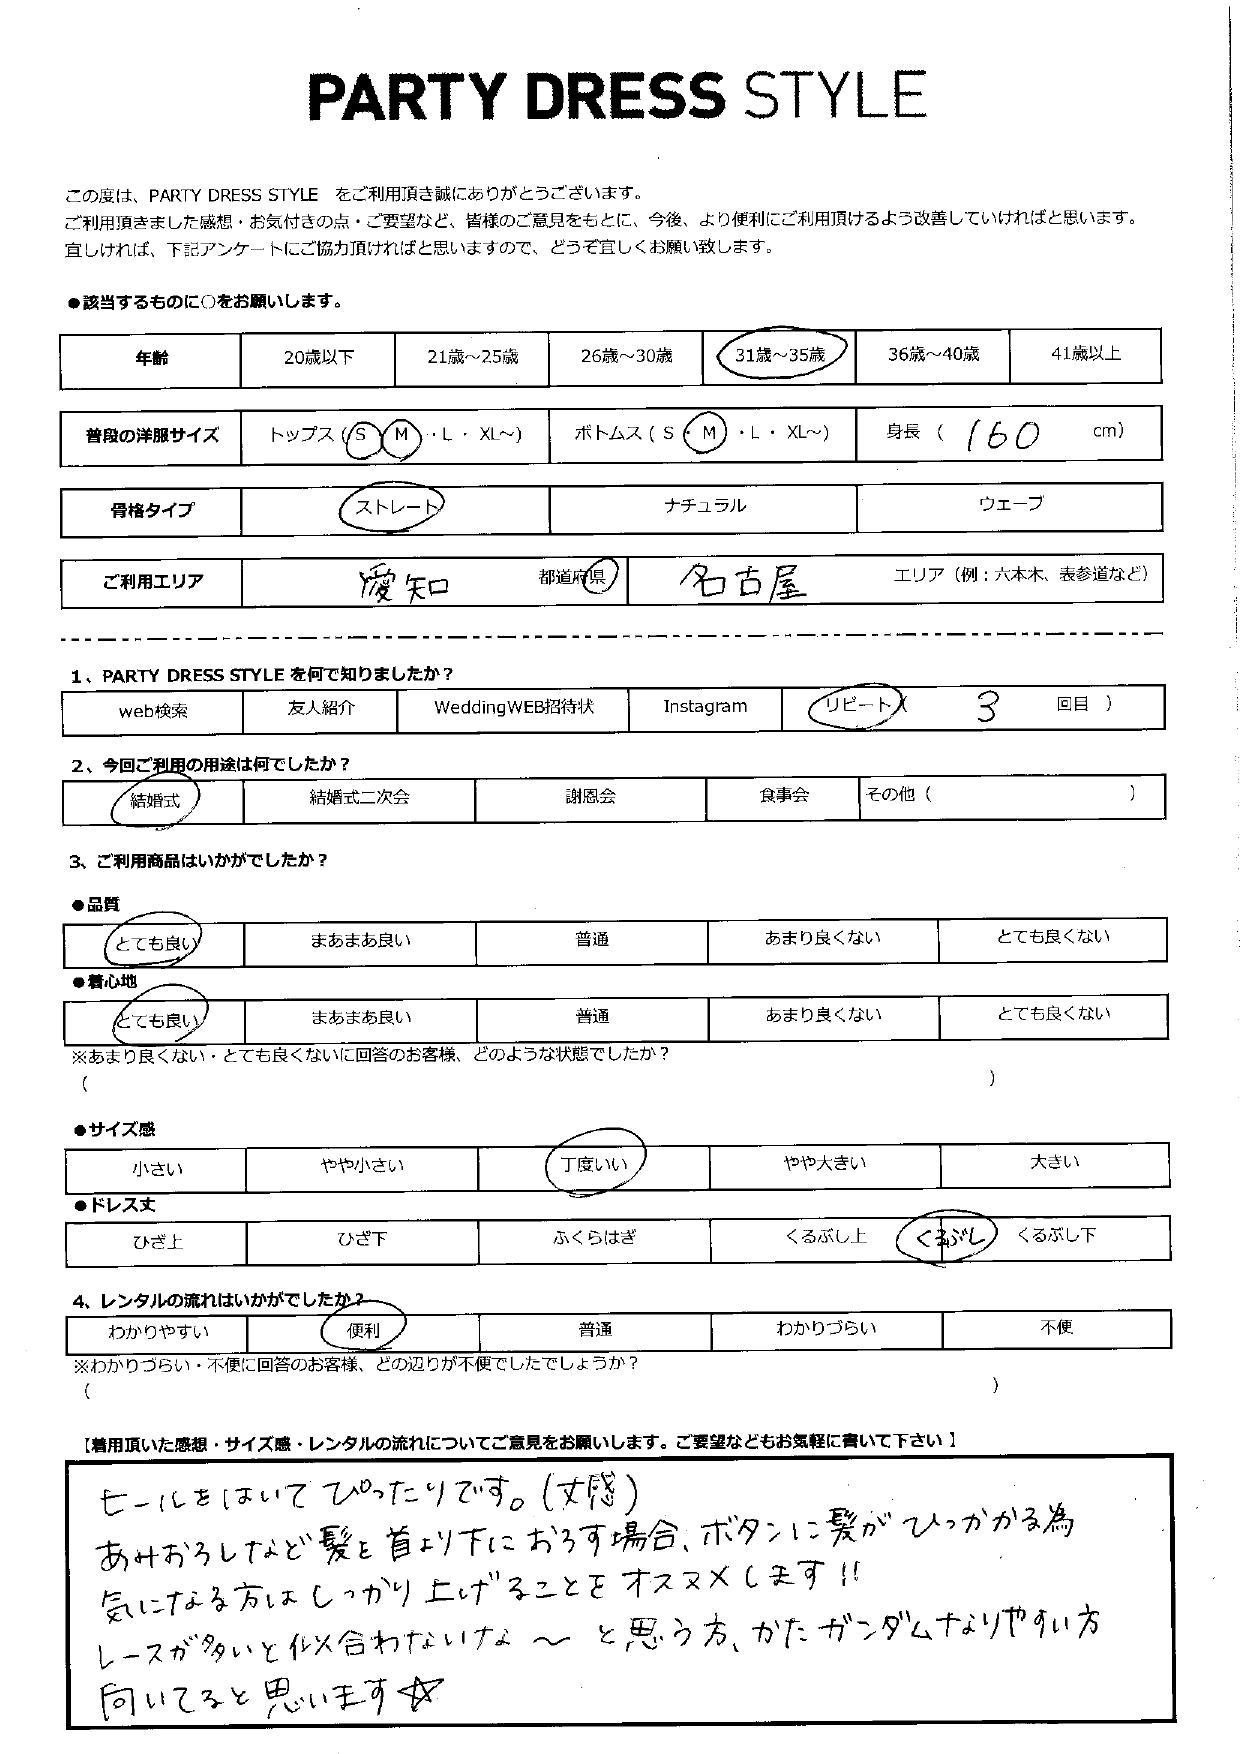 PARTY DRESS STYLE
この度は、PARTY DRESS STYLE をご利用頂き誠にありがとうございます。
ご利用頂きました感想・お気付きの点・ご要望など、皆様のご意見をもとに、今後、より便利にご利用頂けるよう改善していければと思います。
宜しければ、下記アンケートにご協力頂ければと思いますので、どうぞ宜しくお願い致します。
●該当するものに○をお願いします。
年齢 20歳以下 21歳～25歳 26歳～30歳 31歳～35歳 36歳～40歳 41歳以上
普段の洋服サイズ トップス (S・M・L・XL～) ボトムス (S・M・L・XL～) 身長 ( 160 cm)
骨格タイプ ストレート ナチュラル ウェーブ
ご利用エリア 愛知 都道府県 名古屋 エリア（例：六本木、表参道など）
1、PARTY DRESS STYLE を何で知りましたか？
web検索 友人紹介 WeddingWEB招待状 Instagram リピート( 3 回目 )
2、今回ご利用の用途は何でしたか？
結婚式 結婚式二次会 謝恩会 食事会 その他 ( )
3、ご利用商品はいかがでしたか？
●品質
とても良い まあまあ良い 普通 あまり良くない とても良くない
●着心地
とても良い まあまあ良い 普通 あまり良くない とても良くない
※あまり良くない・とても良くないに回答のお客様、どのような状態でしたか？
( )
●サイズ感
小さい やや小さい 丁度いい やや大きい 大きい
●ドレス丈
ひざ上 ひざ下 ふくらはぎ くるぶし上 くるぶし くるぶし下
4、レンタルの流れはいかがでしたか？
わかりやすい 便利 普通 わかりづらい 不便
※わかりづらい・不便に回答のお客様、どの辺りが不便でしたでしょうか？
( )
【着用頂いた感想・サイズ感・レンタルの流れについてご意見をお願いします。ご要望などもお気軽に書いて下さい】
ヒールをはいてぴったりです。(丈感)
あみおろしなど髪を首より下におろす場合、ボタンに髪がひっかかる為
気になる方はしっかり上げることをオススメします!!
レースが多いと似合わないナよ～と思う方、かたガンダムなりやすい方
向いてると思います☆